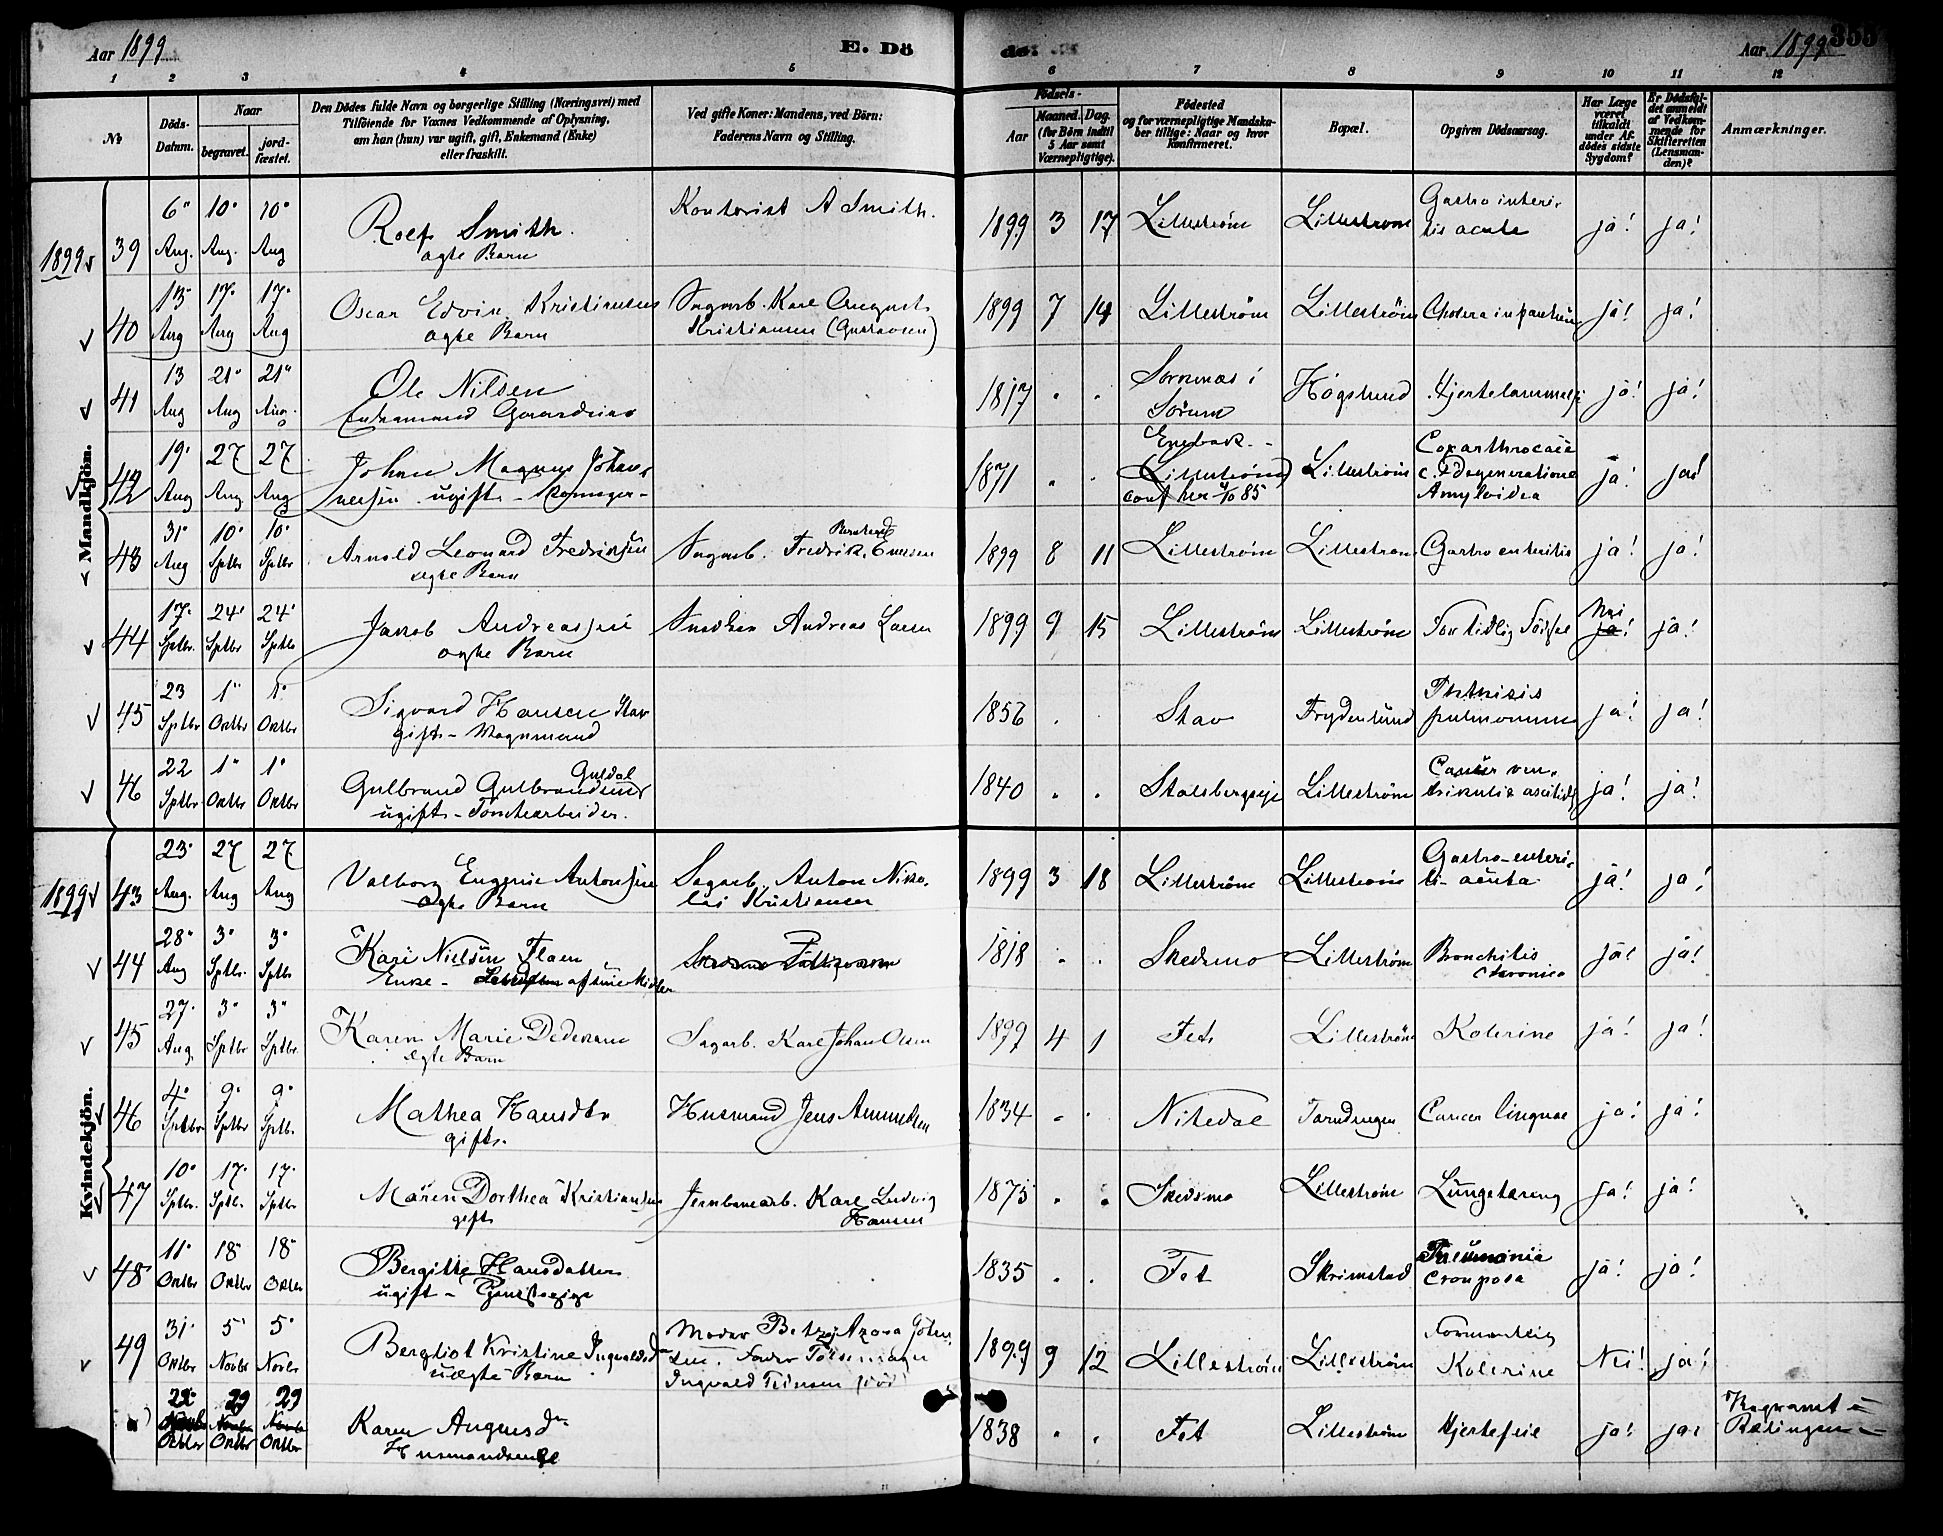 Aar 1899 E. Dö
de. Aar 1899 353
1 2 3 4 5 6 7 8 9 10 11 12
No Döds-Datum. Naar begravet. jordfæstet. Den Dödes fulde Navn og borgerlige Stilling (Næringsvei) med Tilföiende for Voxnes Vedkommende af Oplysning, om han (hun) var ugift, gift, Enkemand (Enke) eller fraskilt. Ved gifte Koner: Mandens, ved Börn: Faderens Navn og Stilling. Födsels- Aar Maaned. Dag. (for Börn indtil 5 Aar samt Værnepligtige). Födested og for værnepligtige Mandskaber tillige: Naar og hvor konfirmeret. Bopæl. Opgiven Dödsaarsag. Har Læge været tilkaldt under Afdödes sidste Sygdom? Er Dödsfaldet anmeldt af Vedkommende for Skifteretten (Lensmanden)? Anmærkninger.
Mandkjön.
1899 39 6 Aug. 10 Aug. 10 Aug Rolf Smith. ægte Barn Kontorist A Smith. 1899 3 17 Lilleström Lilleström Gastro interitis acute ja! ja!
40 13 Aug 17 Aug 17 Aug Oscar Edvin Kristiansen ægte Barn Sagarb. Karl August Kristiansen (Gustavsen) 1899 7 14 Lilleström Lilleström Cholera infantium ja! ja!
41 13 Aug 21 Aug 21 Aug. Ole Nilsen Enkemand 1817 Sörum Högslund ja! ja!
42 19 Aug 27 Aug 27 Aug Johan Magnus Johannessen ugift - 1871 Enebak. (Lilleström) conf her 4/10 85 Lilleström Coxarthrocace c. Degeneratione Amyloidea ja! ja!
43 31 Aug 10 Sptbr 10 Sptbr Arnold Leonard Fredriksen ægte Barn Sagarb. Fredrik Evensen 1899 8 11 Lilleström Lilleström Gastro enteritis ja! ja!
44 17 Sptbr. 24 Sptbr 24 Sptbr Jakob Andreassen ægte Barn Snedker Andreas Larsen 1899 9 15 Lilleström Lilleström For tidlig Födsel Nei ja! ja!
45 23 Sptbr 1 Oktbr 1 Oktbr Sigvard Hansen Stav gift - Vognmand 1856 Stav Frydenlund Phthisis pulmonum ja! ja!
46 22 Sptbr 1 Oktbr 1 Oktbr Gulbrand Gulbrandsen Guldal ugift - Tomtearbeider. 1840 Stalsbergseje Lilleström Cancer ventrikulis ja! ja!
Kvindekjön.
1899 43 23 Aug. 27 Aug 27 Aug Valborg Eugenie Antonsen ægte Barn Sagarb. Anton Nikolai Kristiansen 1899 3 18 Lilleström Lilleström Gastro-enteriti- acuta ja! ja!
44 28 Aug 3 Sptbr. 3 Sptbr Kari Nielsen Flaen Enke - af sine Midler 1818 Skedsmo Lilleström Bronchitis chronica ja! ja!
45 27 Aug 3 Sptbr 3 Sptbr. Karen Marie Dedekam ægte Barn Sagarb. Karl Johan Olsen 1899 4 1 Fet Lilleström Kolerine ja! ja!
46 4 Sptbr 9 Sptbr 9 Sptbr. Mathea Hansdtr gift. Husmand Jens Amundsen 1834 Nitedal Cancer linguae ja! ja!
47 10 Sptbr. 17 Sptbr. 17 Sptbr Maren Dorthea Kristiansen gift Jernbanearb. Karl Ludvig Hansen 1875 Skedsmo Lilleström Lungetæring ja! ja!
48 11 Oktbr 18 Oktbr 18 Oktbr Bergitte Hansdatter ugift - 1835 Fet Skrimstad Pneumonia crouposa ja! ja!
49 31 Oktbr 5 Novbr 5 Novbr Bergliot Kristine Ingvaldsdr uægte Barn Moder Betzy Fader Ingvald 1899 9 12 Lilleström Lilleström Formentlig Kolerine Nei! ja!
22 Oktbr 29 Oktbr 29 Oktbr Karen Augensdr Husmandsenke 1838 Fet Lilleström Hjertefeil ja! ja! Begravet i Rælingen